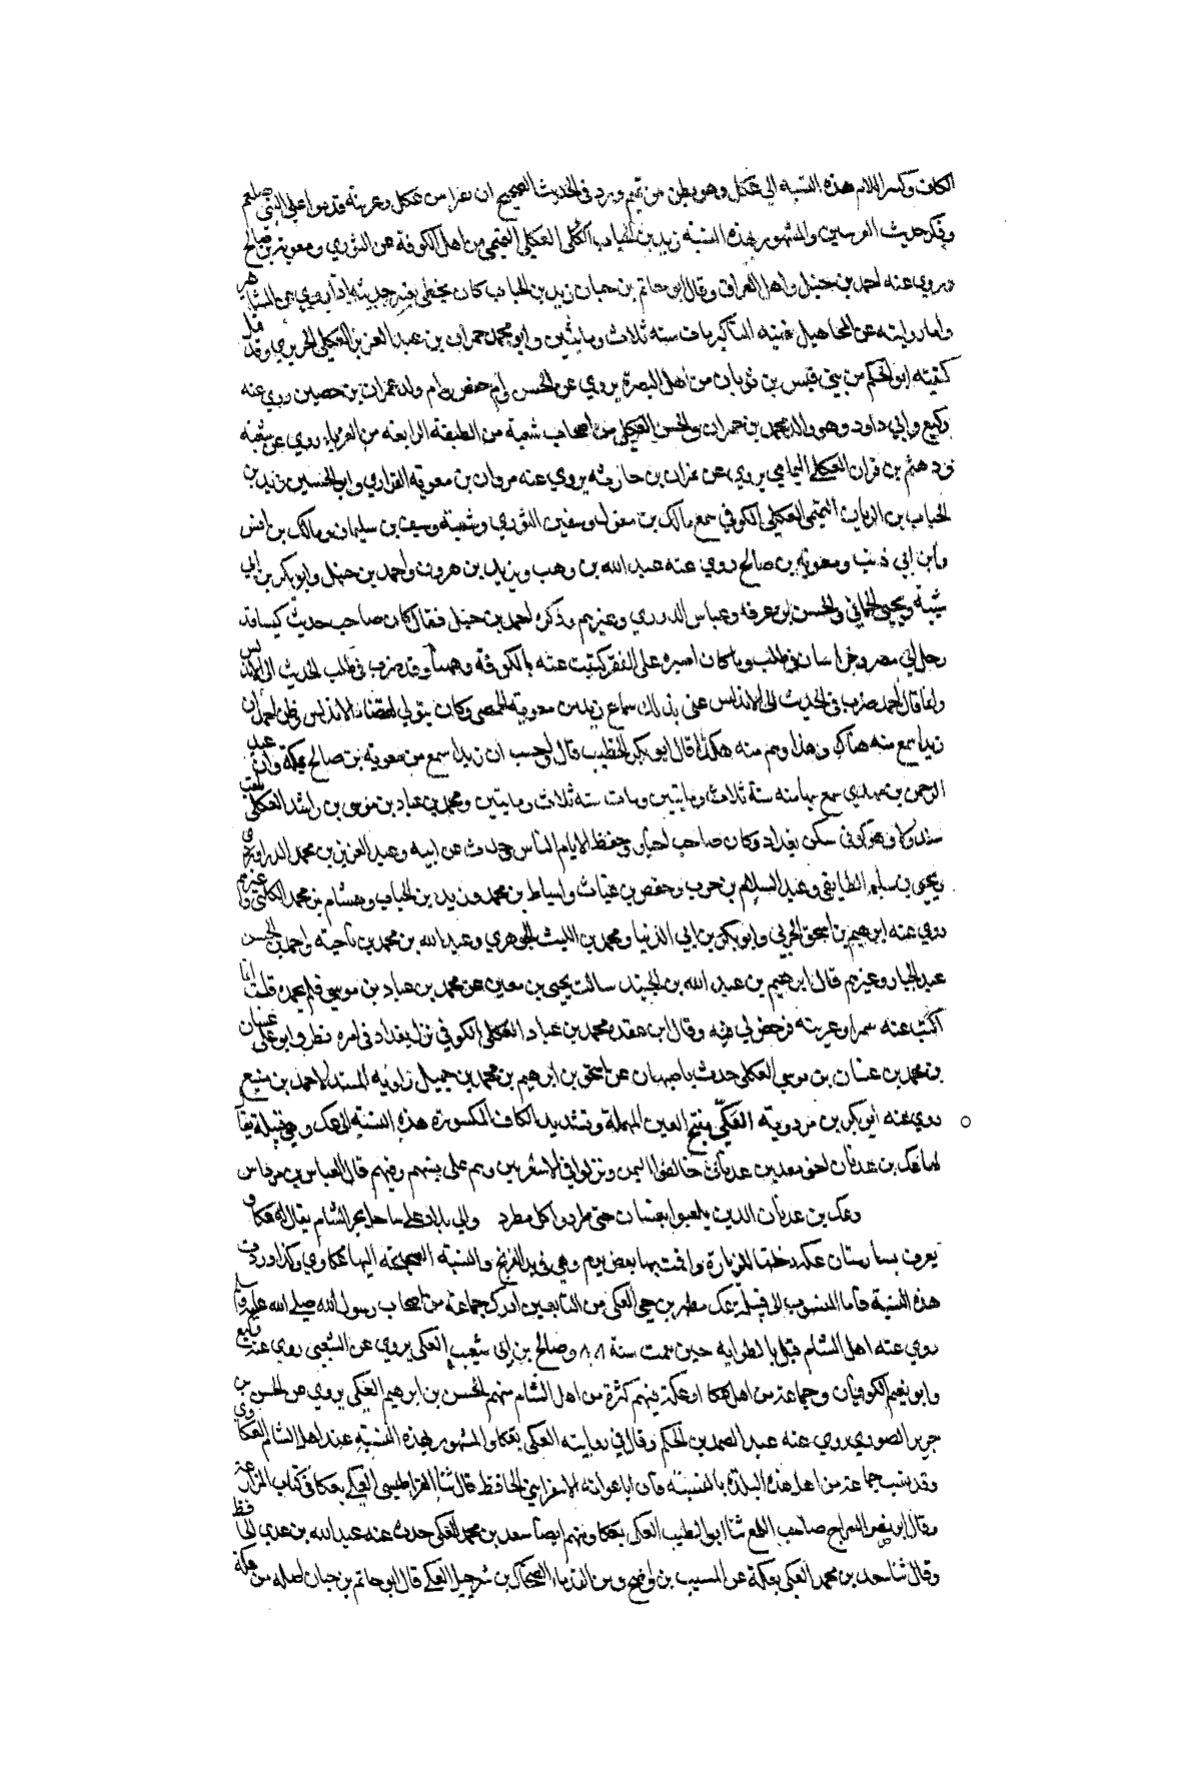 الكاف وكسر اللام هذه النسبة الي عكل وهو بطن من تميم وورد في الحديث الصحيح ان نفرا من عكل وعرينة قدموا علي النبي صلعم
وذكر حديث العرنيين والمشهور بهذه النسبة زيد بن الحباب العكلي التميمي من اهل الكوفة عن الثوري ومعوية بن صالح
وروي عنه احمد بن حنبل واهل العراق وقال ابو حاتم بن حبان زيد بن الحباب كان يخطي يعتبر حديثه اذا روي عن المشاهير
واما روايته عن المجاهيل ففيه المناكير مات سنة ثلاث ومايتين وابو محمد حمران بن عبد العزيز العكلي الجريري وقد قيل
كنيته ابو الحكم من بني قيس بن ثوبان من اهل البصرة يروي عن الحسن وام حفص وام ولد عمران بن حصين روي عنه
وكيع وابي داود وهو والد محمد بن حمران والحسن العكلي من اصحاب شعبة من الطبقة الرابعة من الغرباء روي عن شعبة
ودهثم بن قران العكلي اليمامي يروي عن نمران بن حارثه يروي عنه مروان بن معوية الفزاري وابو الحسين زيد بن
الحباب بن الريان التميمي العكلي الكوفي سمع مالك بن مغول وسفين الثوري وشعبة وسيف بن سليمان ومالك بن انس
وابن ابي ذئب ومعوية بن صالح روي عنه عبد الله بن وهب ويزيد بن هرون واحمد بن حنبل وابو بكر بن ابي
شيبة ويحيى الحماني والحسن بن عرفة وعباس الدوري وغيرهم وذكره احمد بن حنبل فقال كان صاحب حديث كيسا قد
رحل الي مصر وخراسان في طلب وما كان اصبره علي الفقر كتبت عنه بالكوفة وههنا وقد ضرب في طلب الحديث الى الاندلس
وانما قال احمد ضرب في الحديث الى الاندلس عني بذلك سماع زيد من معوية الحمصي وكان يتولي القضاء الاندلس وظن احمد ان
زيدا سمع منه هناك وهذا وهم منه هكذا قال ابو بكر الخطيب قال واحسب ان زيدا سمع من معوية بن صالح بمكة وان عبد
الرحمن بن مهدي سمع بها منه سنة ثلاث ومايتين ومات سنة ثلاث ومايتين ومحمد بن عباد بن موسى بن راشد العكلي يلقب
سندولا وهو كوفي سكن بغداد وكان صاحب اخبار وحفظ لايام الناس وحدث عن ابيه وعبد العزيز بن محمد الدراوردي
ويحيى بن سليم الطايفي وعبد السلام بن حرب وحفص بن غياث واسباط بن محمد وزيد بن الحباب وهشام بن محمد الكلبي وغيرهم
روي عنه ابرهيم بن اسحق الحربي وابو بكر بن ابي الدنيا ومحمد بن الليث الجوهري وعبد الله بن محمد بن ناجية واحمد بن الحسن
عبد الجبار وغيرهم قال ابرهيم بن عبد الله بن الجنيد سالت يحيى بن معين عن محمد بن عباد بن موسى فلم يحمده قلت انما
اكتب عنه سمرا وعربية فرخص لي فيه وقال ابن عقدة محمد بن عباد العكلي الكوفي نزل بغداد في امره نظر وابو علي غسان
بن محمد بن غسان بن موسى العكلي حدث باصبهان عن اسحق بن ابرهيم بن محمد بن جميل راويه المسند لاحمد بن منيع
روي عنه ابو بكر بن مردوية العَكّي بفتح العين المهملة وتشديد الكاف المكسورة هذه النسبة الى عك وهي قبيلة يقال
لها عك بن عدنان اخي معد بن عدنان حالفوا اليمن ونزلوا في الاشعريين وهم علي نسبهم وفيهم قال العباس بن مرداس
وعك بن عدنان الذين يلعبوا بغسان حتى طردوا كل مطرد والي بلاد علي ساحل بحر الشام يقال له عكا و
يعرف بسارستان عكة دخلتها للزيارة واقمت بها بعض يوم وهي في يد الفرنج والنسبة الصحيحة اليها عكاوي وكذا وردت
هذه النسبة فاما المنسوب الى قبيلة عك مطهر بن حي العكي من التابعين ادرك جماعة من اصحاب رسول الله صلي الله عليه وسلم
روي عنه اهل الشام قتل بالطوانة حين سمت سنة ٨٨ وصالح بن ابي شعيب العكي يروي عن الشعبي روي عنه وكيع
وابو نعيم الكوفيان وجماعة من اهل عكا او عكة فيهم كثرة من اهل الشام منهم الحسن بن ابرهيم العكي يروي عن الحسن بن
جرير الصوري روي عنه عبد الصمد بن الحكم وقال في روايته العكي بعكا والمشهور بهذه النسبة عند اهل الشام العكاوي
وقد نسب جماعة من اهل هذه البلدة بالنسبة فان ابا عوانة الاسفرايني الحافظ قال ثنا القراطيسي العكي بعكا في كتاب المزارعة
وقال ابو نصر السراج صاحب اللمع ثنا ابو الطيب العكي بعكا ومنهم ايضا سعد بن محمد العكي حدث عنه عبد الله بن عدي الحافظ
وقال ثنا سعد بن محمد العكي بعكة عن المسيب بن واضح ومن القدماء الضحاك بن شرحبيل العكي قال ابو حاتم بن حبان اصله من مكة